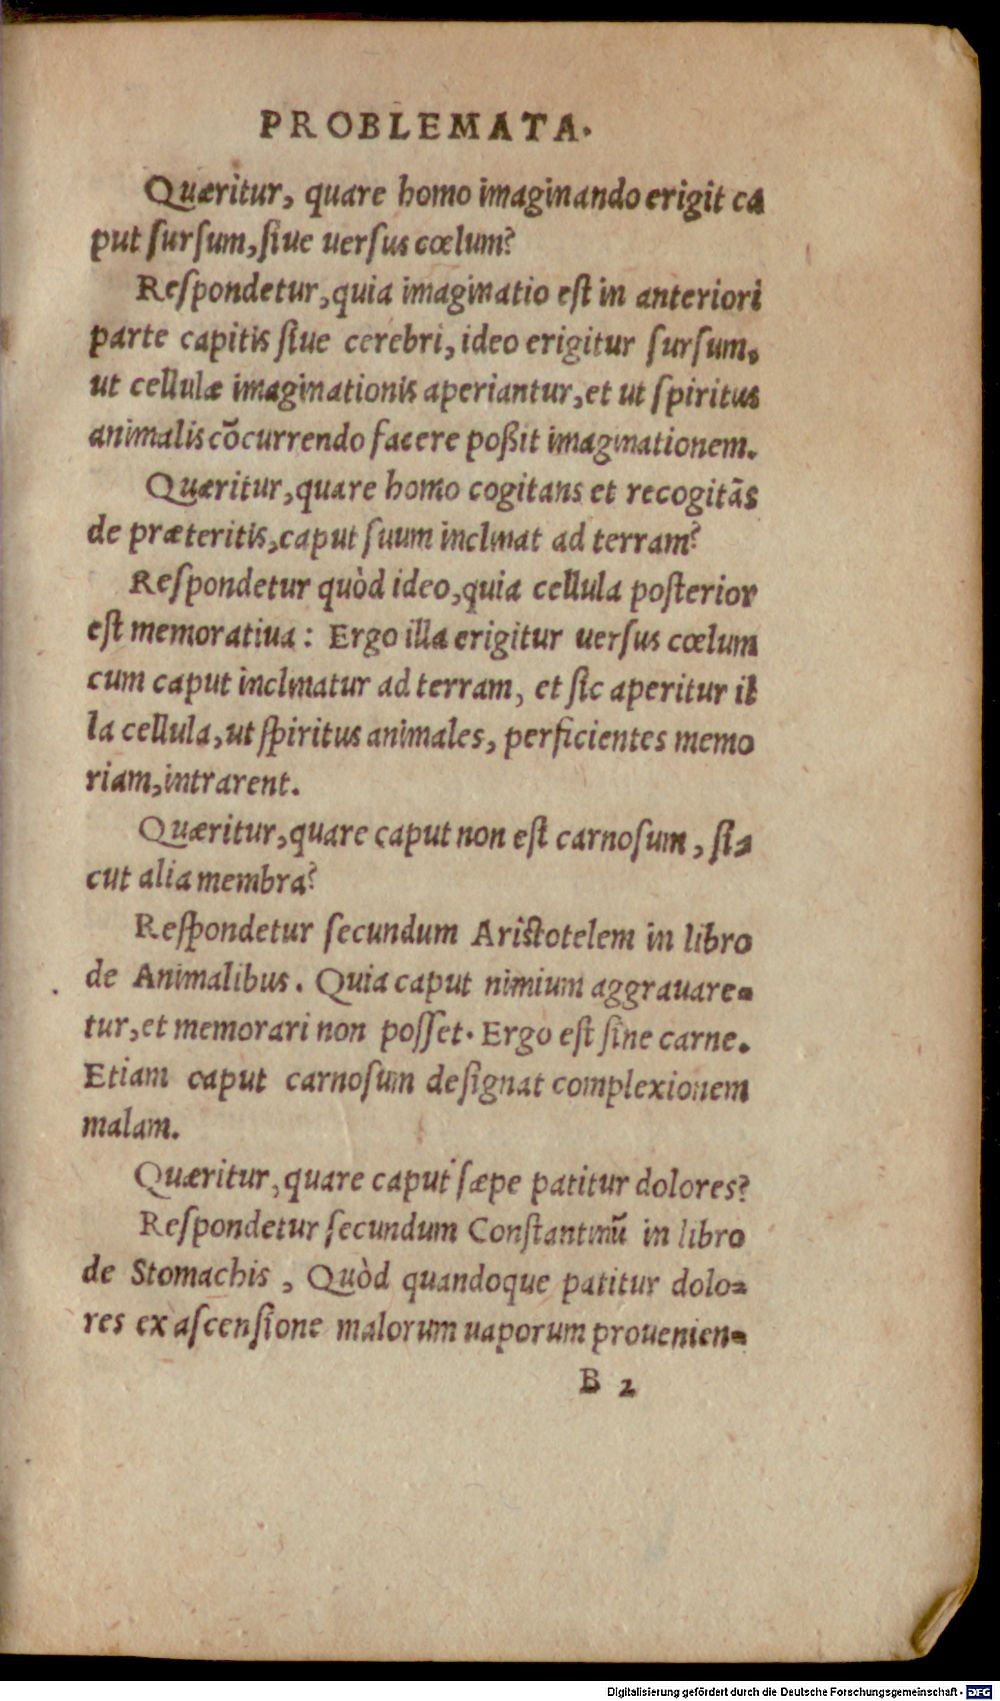 PROBLEMATA.
Quæritur, quare homo imaginando erigit ca
put sursum, siue uersus cœlum?
Respondetur, quia imaginatio est in anteriori
parte capitis siue cerebri, ideo erigitur sursum,
ut cellulæ imaginationis aperiantur, et ut spiritus
animalis cõcurrendo facere poßit imaginationem.
Quæritur, quare homo cogitans et recogitãs
de præteritis, caput suum inclinat ad terram?
Respondetur quòd ideo, quia cellula posterior
est memoratiua: Ergo illa erigitur uersus cœlum
cum caput inclinatur ad terram, et sic aperitur il
la cellula, ut spiritus animales, perficientes memo
riam, intrarent.
Quæritur, quare caput non est carnosum, si-
cut alia membra?
Respondetur secundum Aristotelem in libro
de Animalibus. Quia caput nimium aggrauare-
tur, et memorari non posset. Ergo est sine carne.
Etiam caput carnosum designat complexionem
malam.
Quæritur, quare caput sæpe patitur dolores?
Respondetur secundum Constantinũ in libro
de Stomachis, Quòd quandoque patitur dolo-
res ex ascensione malorum uaporum prouenien-
B 2
Digitalisierung gefördert durch die Deutsche Forschungsgemeinschaft - DFG